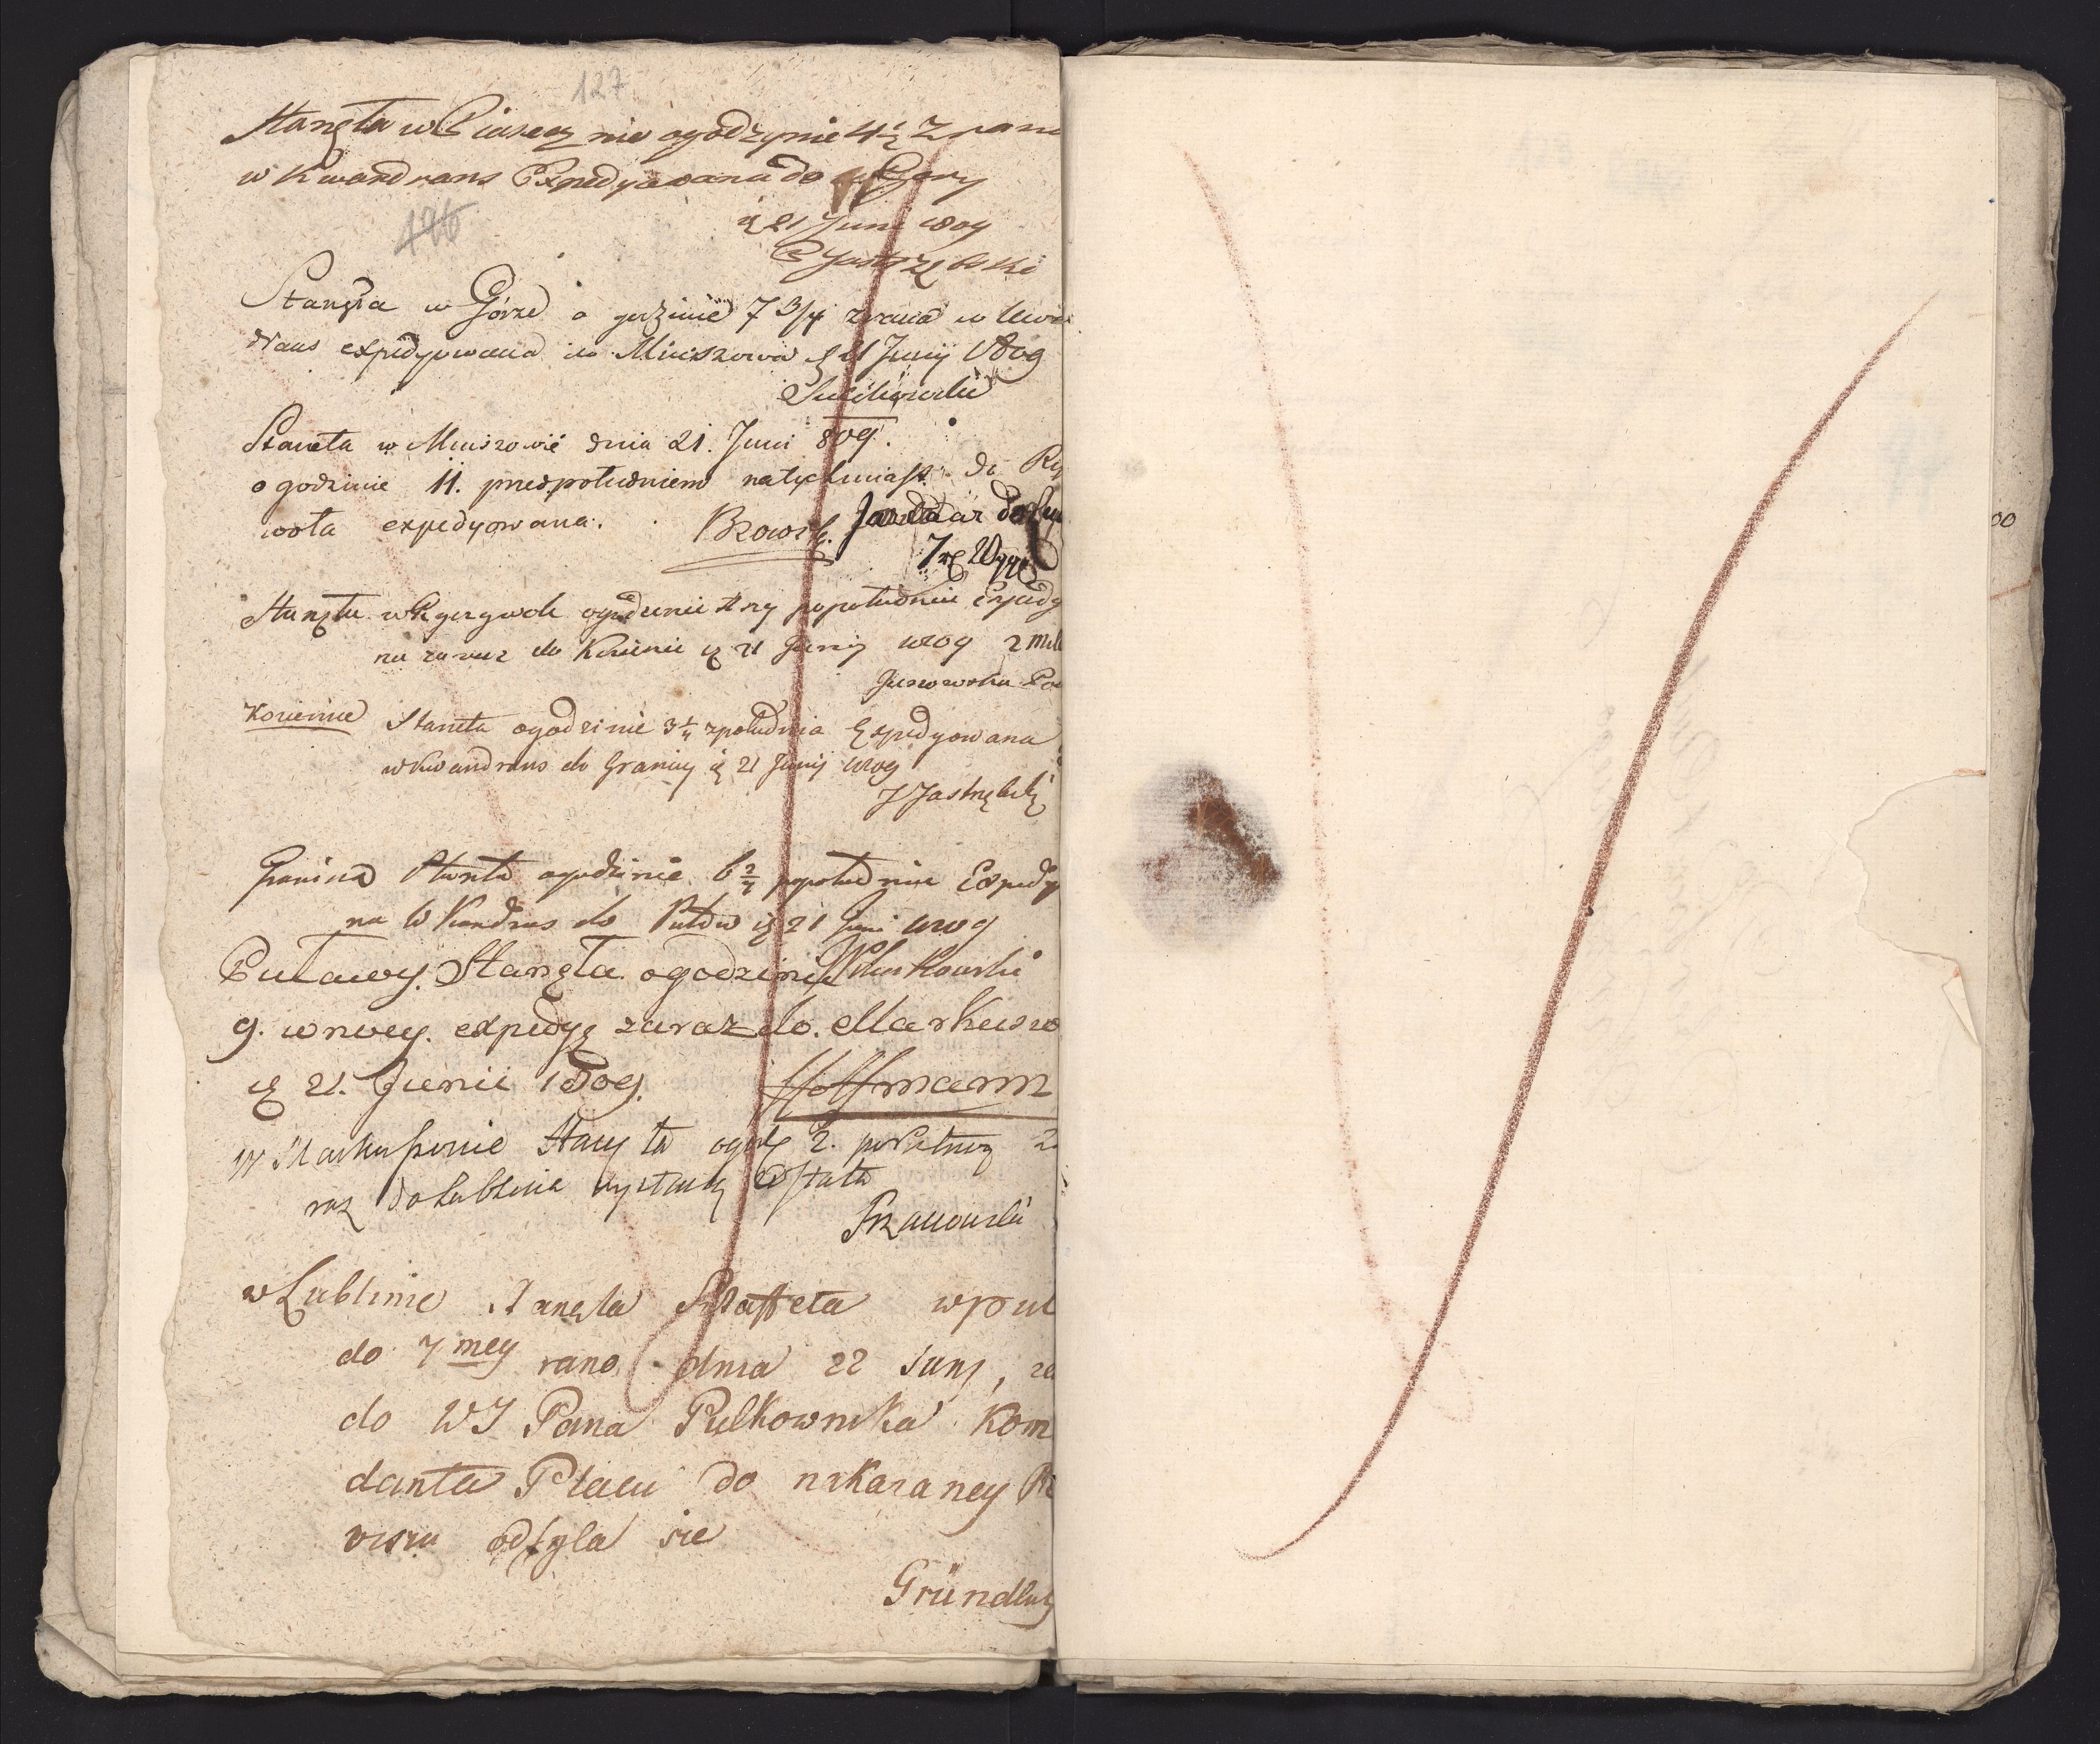 127
Stanęła w Piasecznie ogodzynie 4½ Z rana
w Kwandrans Expedyowana do Gory
21 Juni 1809
Jastrzębski
126
Stanęła w Górze o godzinie 7 3/4 zrana w kwa
drans expedyowana do Miniszewa d 21 Junij 1809
Staneła w Miniszewie dnia 21. Juni 809.
o godzinie 11. przedpołudniem natychmiast do Ry
wołu expedyowana.
Stanęła w Ryczywole ogodzinie popołudniu Expedy
na zaraz do Kozienic d 21 Junij 1809 2 mile
Kozienice Staneła ogodzinie 3¼ zpołudnia Expedyowana
w Kwandrans do Granicy d 21 Junij 1809
J Jastrzębski
Granica Stanęła ogodzinie 6 popołudniu Expedy
na W Kwandrans do Puław d 21 Juni 1809
Puławy. Stanęła ogodzinie
9. wnocy. expedyę zaraz do. Markuszo
d 21. Junii 1809. Hoffmann
W Markuszowie Stanęła ogodz 2. popułnocy Za
raz do Lublina
w Lublinie Stanęła Sztaffeta wpuł
do 7mey rano dnia 22 Junj, za
do WJ Pana Pułkownika Kom
danta Placu do nakazaney
odsyla sie
00